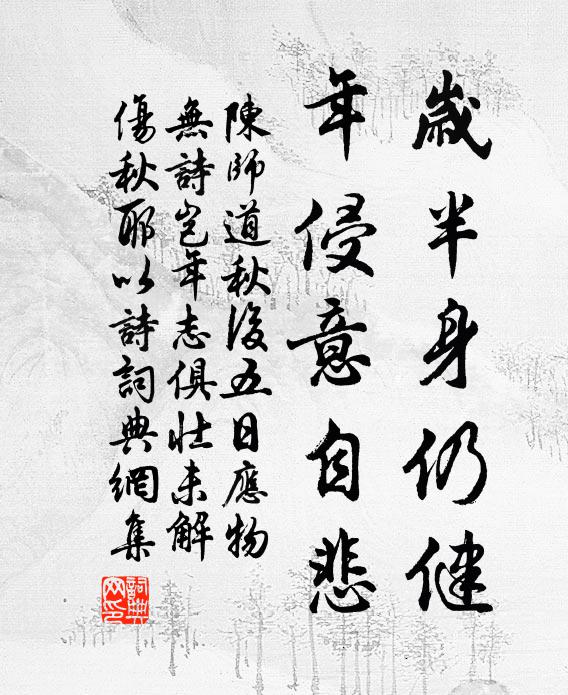 歲半身仍健
年侵意自悲
陳師道秋後五日應物
無詩豈年志俱壯未解
傷秋耶以詩詞典網集